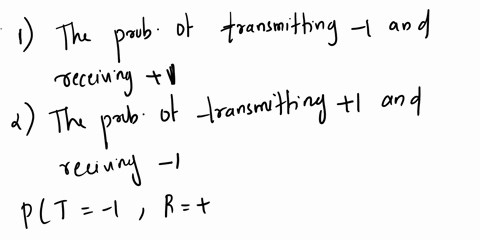 1) The prob. of transmitting -1 and
receiving +1
2) The prob. of transmitting +1 and
reciving -1
P(T = -1, R = +